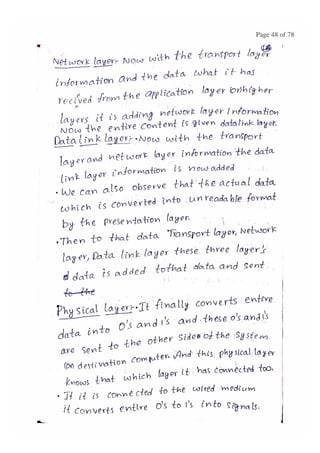 Page 48 of 78
Network layer:- Now with the transport layer
information and the data what it has
recived from the application layer (or) higher
layers it is adding network layer Information
Now the entire content is given datalink layer.
Data link layer:- •Now with the transport
layer and network layer information the data
link layer information is now added
• We can also observe that the actual data
which is converted into unreadable format
by the presentation layer.
•Then to that data Transport layer, Network
layer, Data link layer these three layer's
data is added to that data and sent.
to the
Physical layer:- •It finally converts entire
data into 0's and 1's and these 0's and 1's
are sent to the other side of the system
(or) destination computer. And this physical layer
knows that which layer it has connected too.
• If it is connected to the wired medium
it converts entire 0's to 1's into signals.